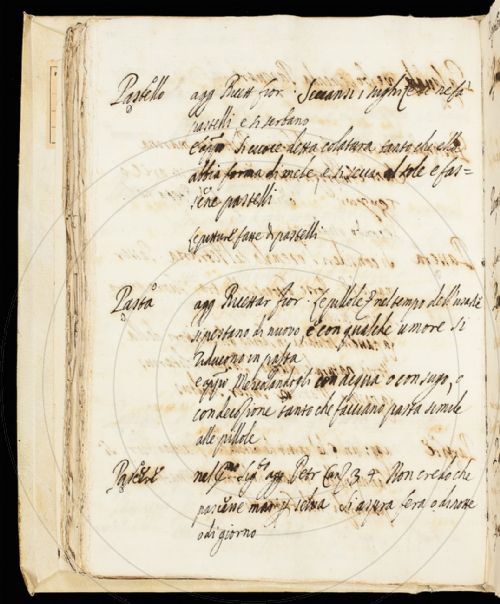 Pastello agg Ricett fior. Seccansi i
pastelli e si serbano
Si cuoce detta colatura tanto che ella
abbia forma di mele, e si secca al sole e fas=
sene pastelli
le pitture fatte di pastelli
Pasta agg Ricettar fior. le pillole nel tempo dell'usarle
si pestano di nuovo, e con qualche umore si
riducono in pasta
Mescolandogli con acqua o con sugo, o
con decozione tanto che facciano pasta simile
alle pillole
Pascere nel agg Petr Canz 3 4 Non credo che
pascesse mai selva Si aspra fera o di notte
o di giorno